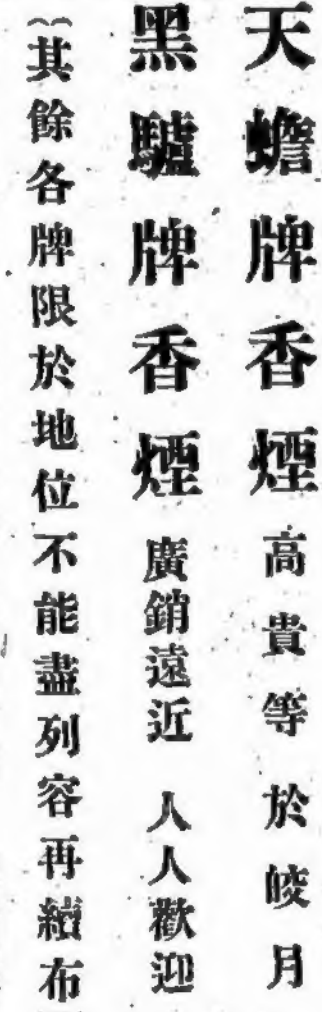 天蟾牌香煙 高貴等於皎月
黑驢牌香煙 廣銷遠近 人人歡迎
(其餘各牌限於地位不能盡列容再續布